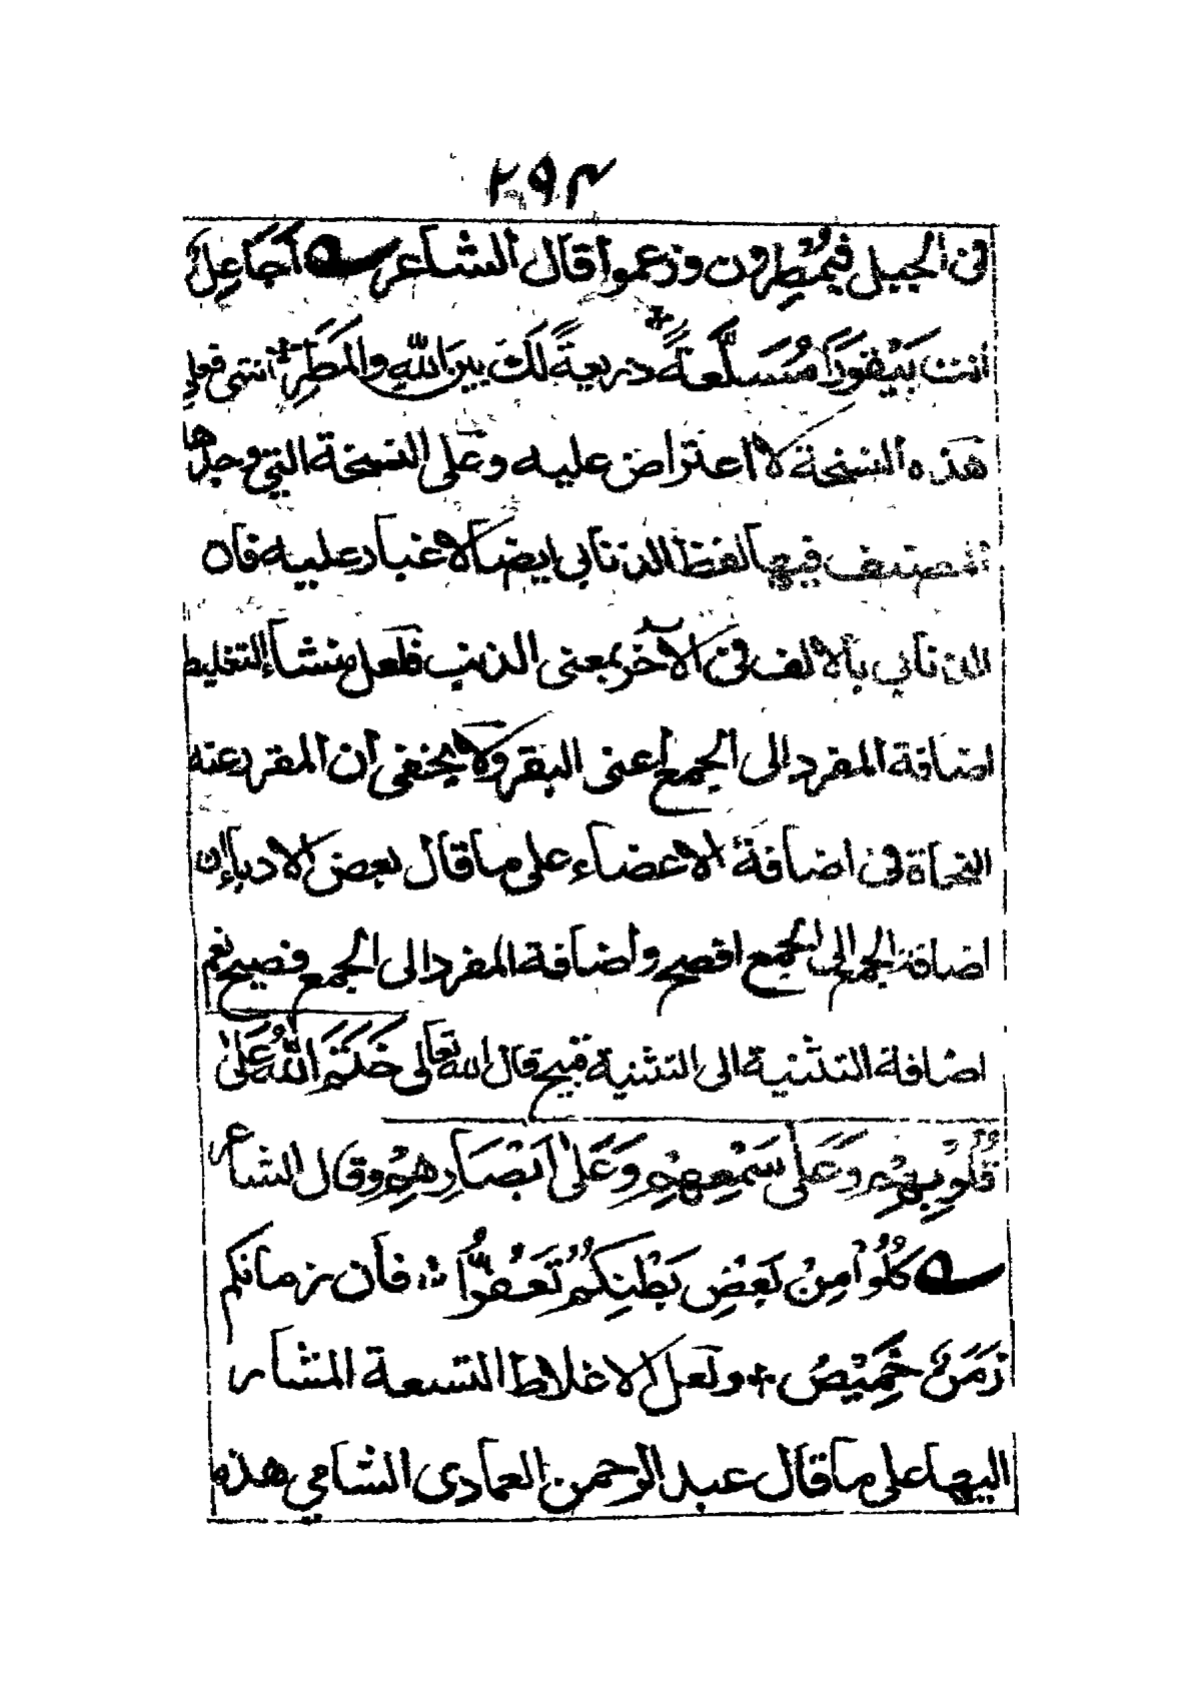 ٢٩٣
فى الجبل فيُمْطِرون وزعموا قال الشاعر أَجَاعِلٌ
انت بَيْقُورًا مُسَلَّعَةً ذريعةً لَكَ بين اللهِ والمَطَرِ انتهى فعلى
هذه النسخة لا اعتراض عليه وعلى النسخة التى وجدها
المصنف فيها لفظ الذنابى ايضا لا غبار عليه فان
الذنابى بالالف فى الآخر بمعنى الذنب فلعل منشاء التغليط
اضافة المفرد الى الجمع اعنى البقر ولا يخفى ان المقرر عند
النحاة فى اضافة الاعضاء على ما قال بعض الادباء ان
اضافة الجمع الى الجمع افصح واضافة المفرد الى الجمع فصيح نعم
اضافة التثنية الى التثنية قبيح قال الله تعالى خَتَمَ اللهُ عَلىٰ
قُلُوْبِهِمْ وَعَلىٰ سَمْعِهِمْ وَعَلىٰ اَبْصَارِهِمْ وقال الشاعر
كُلُوْا مِنْ بَعْضِ بَطْنِكُمْ تَعَفُّوْا فان زمانكم
زَمَنٌ خَمِيْصُ ولعل الاغلاط التسعة المشار
اليها على ما قال عبد الرحمن العمادى الشامي هذه